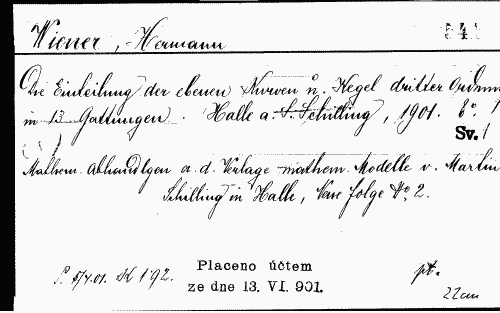 Wiener, Hermann
Die Einteilung der ebenen Kurven u. Kegel dritter Ordnun
in 13 Gattungen. Halle a. S. Schilling, 1901. 8o. 1
Sv. 1
Mathem. Abhandlgen a. d. Verlage mathem. Modelle v. Martin
Schilling in Halle, Neue Folge No 2.
Placeno účtem
ze dne 13. VI. 901.
pt.
22cm